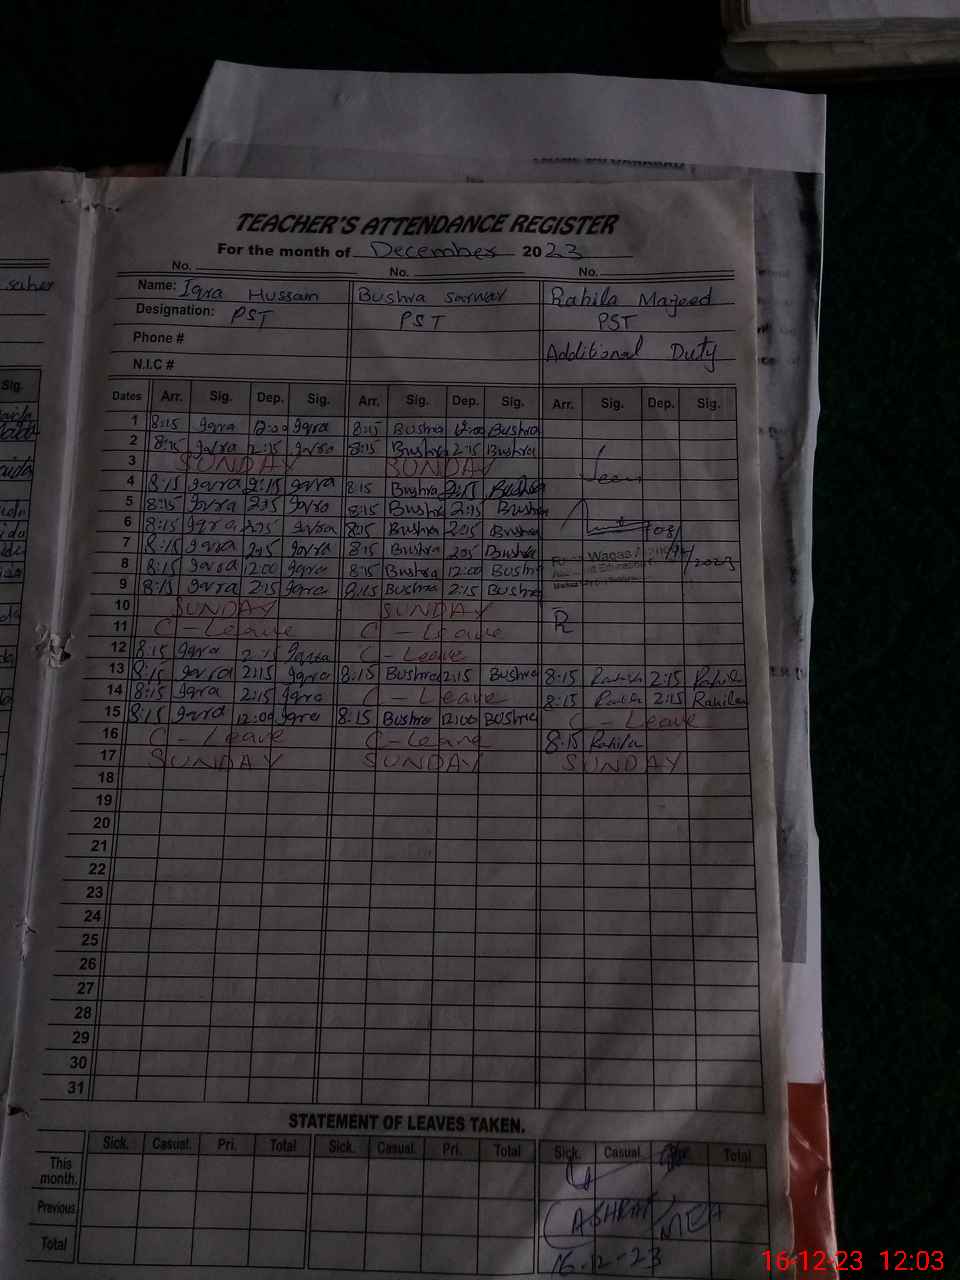 TEACHER'S ATTENDANCE REGISTER
For the month of December 2023
No. No. No.
Name: Iqra Hussain Bushra Sarwar Rahila Majeed
Designation: PST PST PST
Phone # Additional Duty
N.I.C #
Dates Arr. Sig. Dep. Sig. Arr. Sig. Dep. Sig. Arr. Sig. Dep. Sig.
1 8:15 Iqra 12:00 Iqra 8:15 Bushra 12:00 Bushra
2 8:15 Iqra 2:15 Iqra 8:15 Bushra 2:15 Bushra
3 SUNDAY SUNDAY
Seen
4 8:15 Iqra 2:15 Iqra 8:15 Bushra 2:15 Bushra
5 8:15 Iqra 2:15 Iqra 8:15 Bushra 2:15 Bushra
6 8:15 Iqra 2:15 Iqra 8:15 Bushra 2:15 Bushra
7 8:15 Iqra 2:15 Iqra 8:15 Bushra 2:15 Bushra
8 8:15 Iqra 12:00 Iqra 8:15 Bushra 12:00 Bushra
Waqas
2023
9 8:15 Iqra 2:15 Iqra 8:15 Bushra 2:15 Bushra
10 SUNDAY SUNDAY
11 C - Leave C - Leave R
12 8:15 Iqra 2:15 Iqra C - Leave
13 8:15 Iqra 2:15 Iqra 8:15 Bushra 2:15 Bushra 8:15 Rahila 2:15 Rahila
14 8:15 Iqra 2:15 Iqra C - Leave 8:15 Rahila 2:15 Rahila
15 8:15 Iqra 12:00 Iqra 8:15 Bushra 12:00 Bushra C - Leave
16 C - Leave C - Leave 8:15 Rahila
17 SUNDAY SUNDAY SUNDAY
18
19
20
21
22
23
24
25
26
27
28
29
30
31
STATEMENT OF LEAVES TAKEN.
Sick. Casual. Pri. Total Sick. Casual. Pri. Total Sick. Casual. Total
This month.
Previous
ASHRAF MEA
Total
16-12-23
16-12-23 12:03